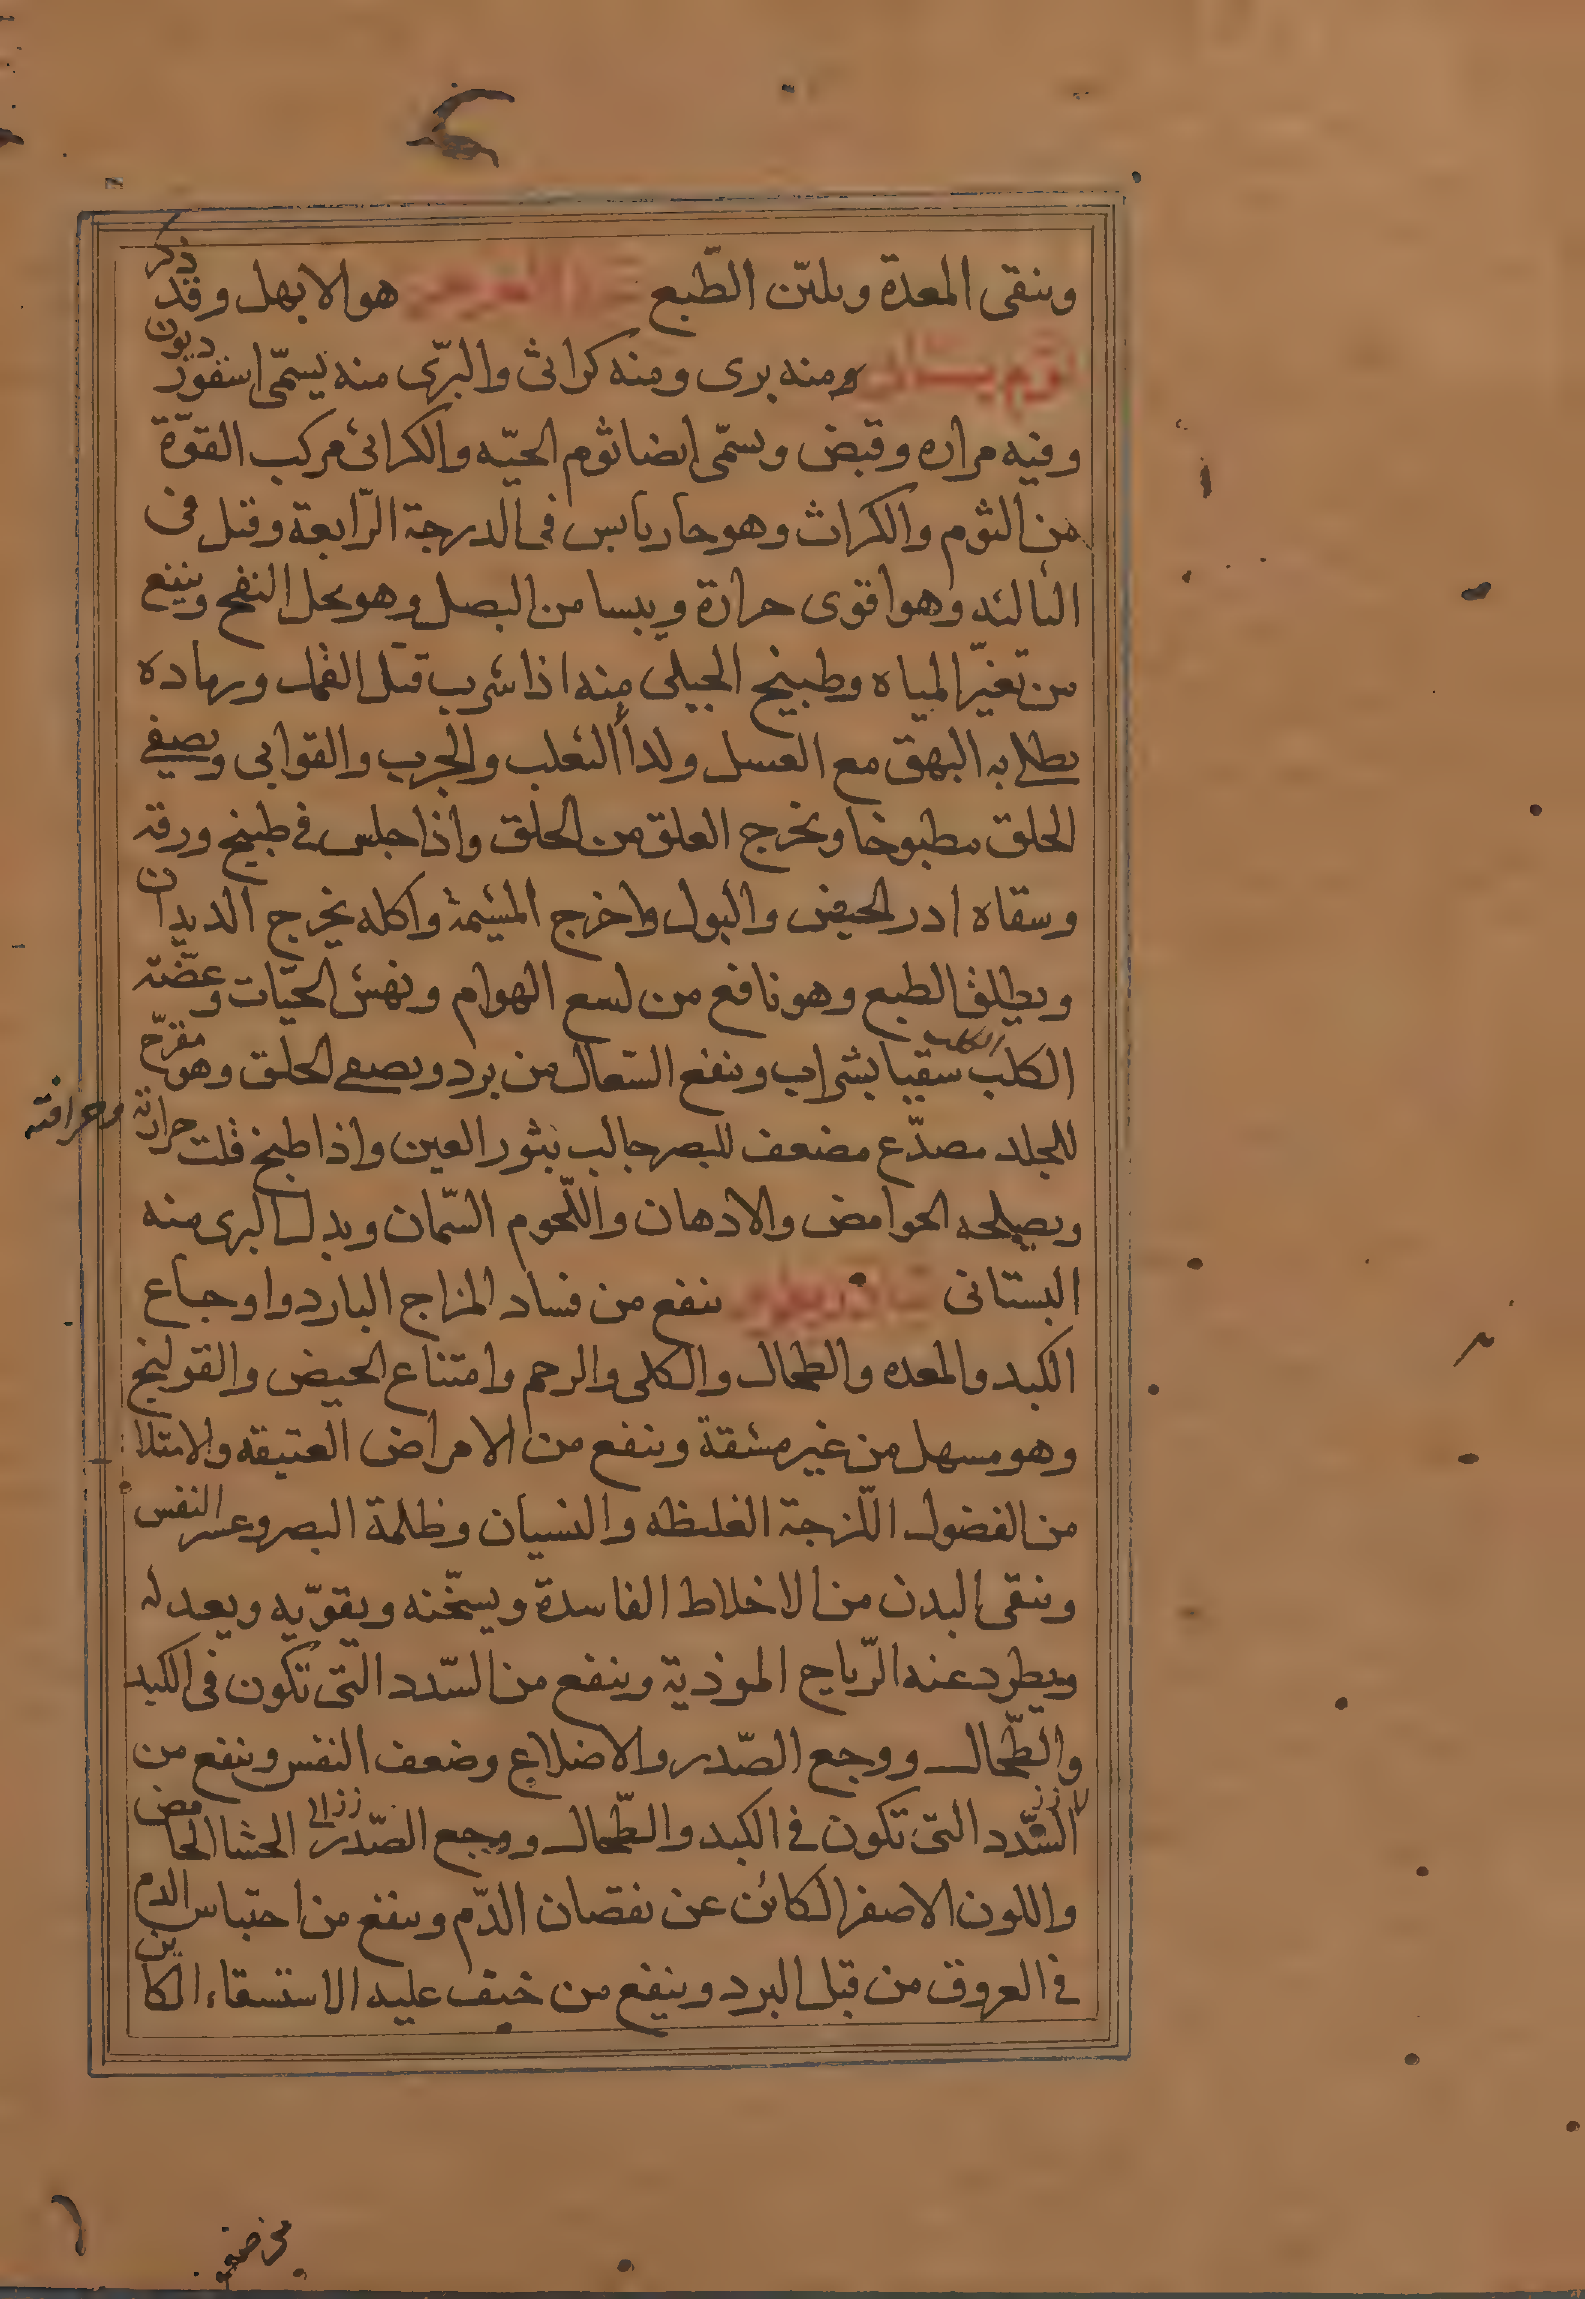 وينقى المعدة ويلين الطّبع العرعر هو الابهل وقد ذكر
ثوم بستانى ومنه برى ومنه كراثى والبرّى منه يسمّى اسقورديون
وفيه مراره وقبض ويسمّى ايضا ثوم الحيّه والكراثى مركب القوّة
من الثوم والكراث وهو حار يابس فى الدرجة الرّابعة وقيل فى
الثالثه وهو اقوى حرارة ويبسا من البصل وهو يحل النفخ وينفع
من تغيّر المياه وطبيخ الجبلى منه اذا شرب قتل القمل ورماده
يطلى به البهق مع العسل ولداء الثعلب والجرب والقوابى ويصفى
الحلق مطبوخا ويخرج العلق من الحلق واذا جلس فى طبيخ ورقه
وسقاه ادر الحيض والبول واخرج المشيمة واكله يخرج الديدان
ويطلق الطبع وهو نافع من لسع الهوام ونهش الحيّات وعضّته
الكلب الكلب سقيا بشراب وينفع السّعال من برد ويصفى الحلق وهو مقرّح
للجلد مصدّع مضعف للبصر جالب بثور العين واذا طبخ قلت حرارته وحرافته
ويصلحه الحوامض والادهان واللّحوم السّمان وبدل البرى منه
البستانى ينفع من فساد المزاج البارد واوجاع
الكبد والمعده والطحال والكلى والرحم وامتناع الحيض والقولنج
وهو مسهل من غير مشقة وينفع من الامراض العتيقه والامتلا
من الفضول اللّزجة الغليظه والنسيان وظلمة البصر وعسر النفس
وينقى البدن من الاخلاط الفاسدة ويسخّنه ويقوّيه ويعدله
ويطرد عنه الرّياح الموذية وينفع من السّدد التى تكون فى الكبد
والطّحال ووجع الصّدر والاضلاع وضعف النفس وينفع من
السّدد التى تكون فى الكبد والطّحال ووجع الصّدر الجشا الحامض
واللون الاصفر الكائن عن نقصان الدّم وينفع من احتباس الدم
فى العروق من قبل البرد وينفع من خيف عليه الاستسقاء الكاين